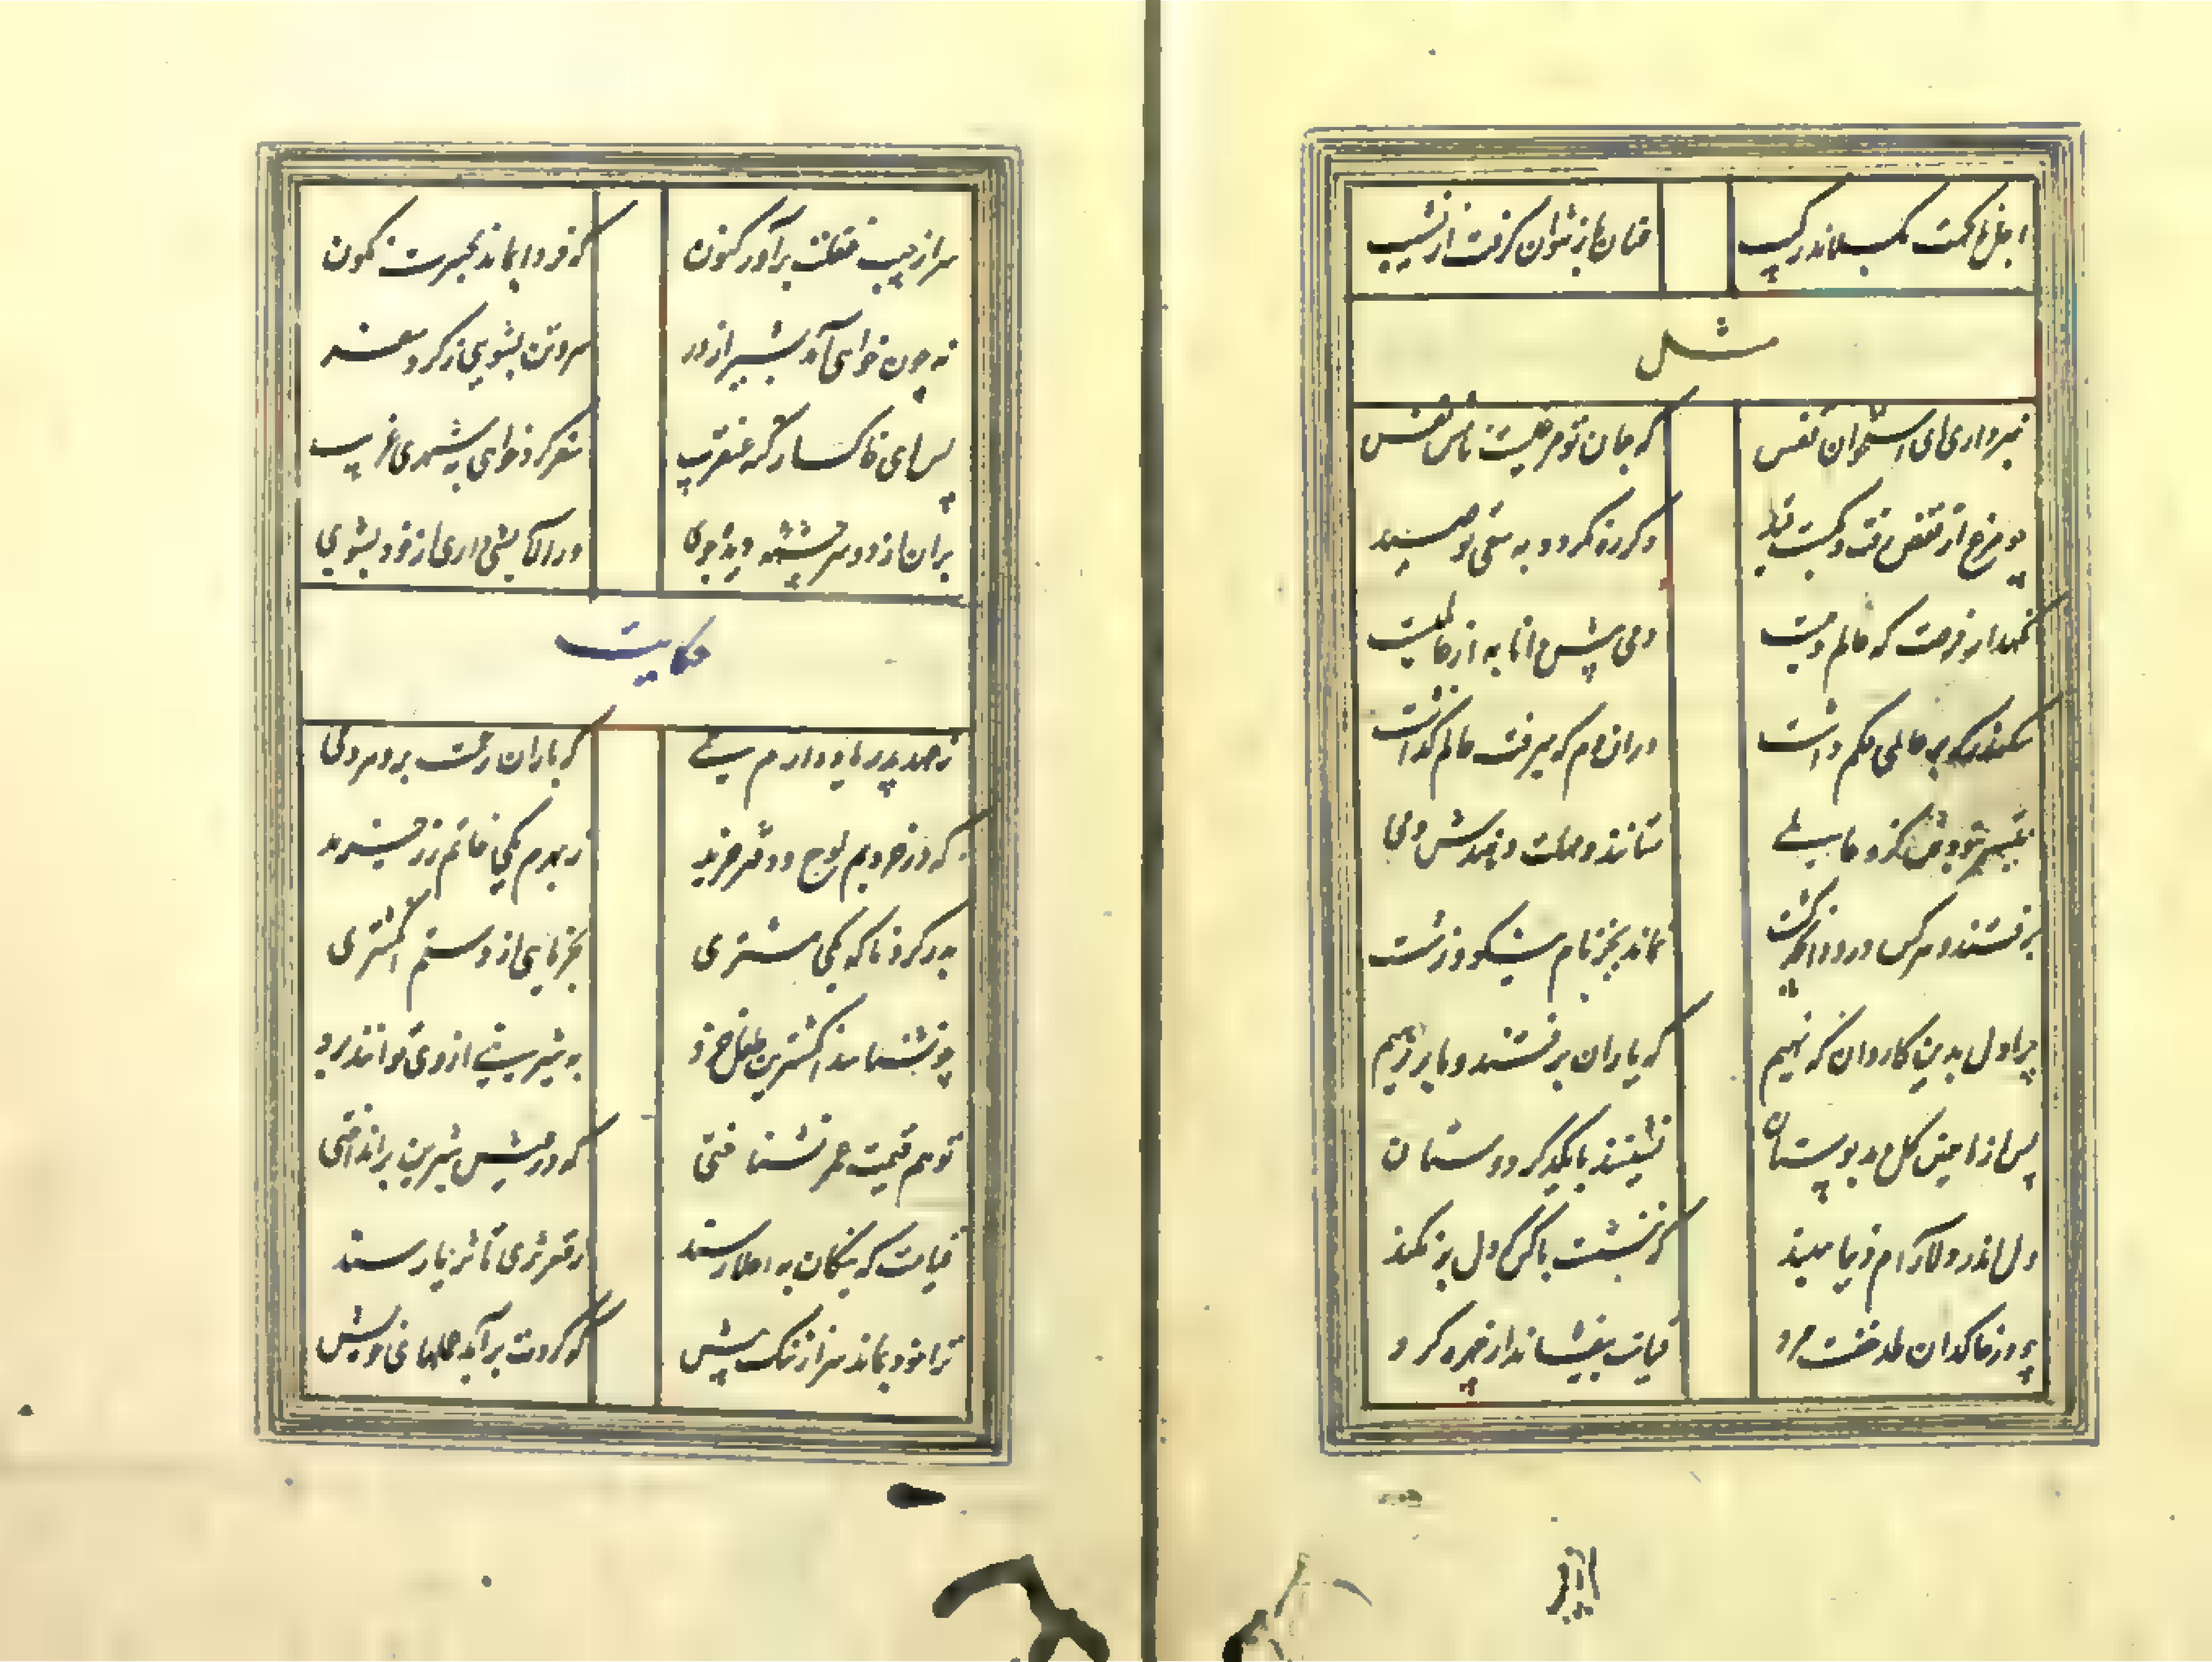 اجل ناگهت بگسلاند رکیب عنان باز نتوان گرفت از نشیب
مثل
خبر داری ای استخوان قفس که جان تو مرغیست نامش نفس
چو مرغ از قفس رفت و بگسست قید دگر ره نگردد به سعی تو صید
نگهدار فرصت که عالم دمیست دمی پیش دانا به از عالمیست
سکندر که بر عالمی حکم داشت در آن دم که میرفت عالم گذاشت
میسر نبودش کزو عالمی ستانند و مهلت دهندش دمی
برفتند و هر کس درود آنچه کشت نماند بجز نام نیکو و زشت
چرا دل بدین کاروان که نهیم که یاران برفتند و ما بر رهیم
پس از ما همین گل دهد بوستان نشینند با یکدگر دوستان
دل اندر دلارام دنیا مبند که ننشست با کس که دل بر نکند
چو در خاکدان لحد خفت مرد قیامت بیفشاند از چهره گرد
سر از جیب غفلت برآور کنون که فردا بماند بحسرت نگون
نه چون خواهی آمد بشیراز در سر و تن بشویی ز گرد سفر
پس ای خاکسار گنه عنقریب سفر کرد خواهی به شهری غریب
بران از دو سرچشمه دیده جوی ور آلایشی داری از خود بشوی
حکایت
ز عهد پدر یاد دارم همی که باران رحمت برو هر دمی
که در خردیم لوح و دفتر خرید ز بهرم یکی خاتم زر خرید
بدر کرد ناگه یکی مشتری بخرمایی از دستم انگشتری
چو نشناسد انگشتری طفل خرد به شیرینی از وی توانند برد
تو هم قیمت عمر نشناختی که در عیش شیرین برانداختی
قیامت که نیکان به اعلا رسند ز قعر ثری تا ثریا رسند
ترا خود بماند سر از ننگ پیش که گردت برآید عملهای خویش